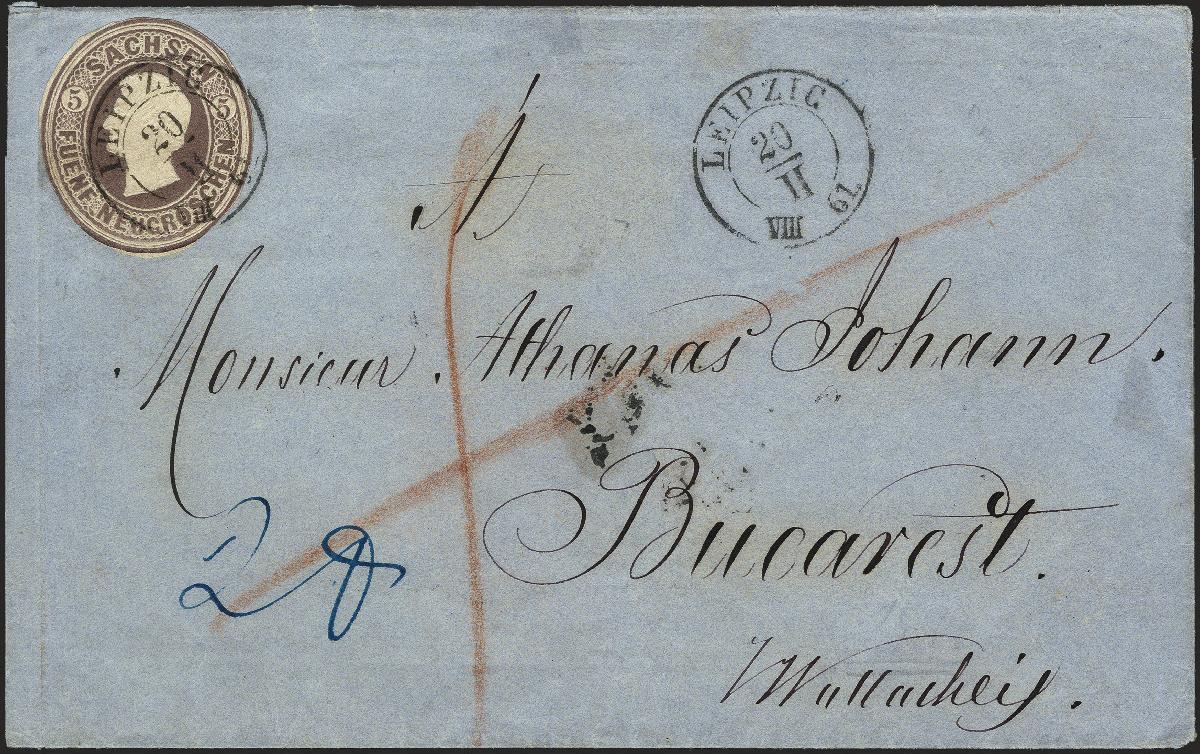 SACHSEN
5 5
FUENF NEUGROSCHEN
LEIPZIG
20
II
VIII
61
LEIPZIG
20
II
VIII
61
Monsieur Athanas Johann.
Bucarest.
Wallachei.